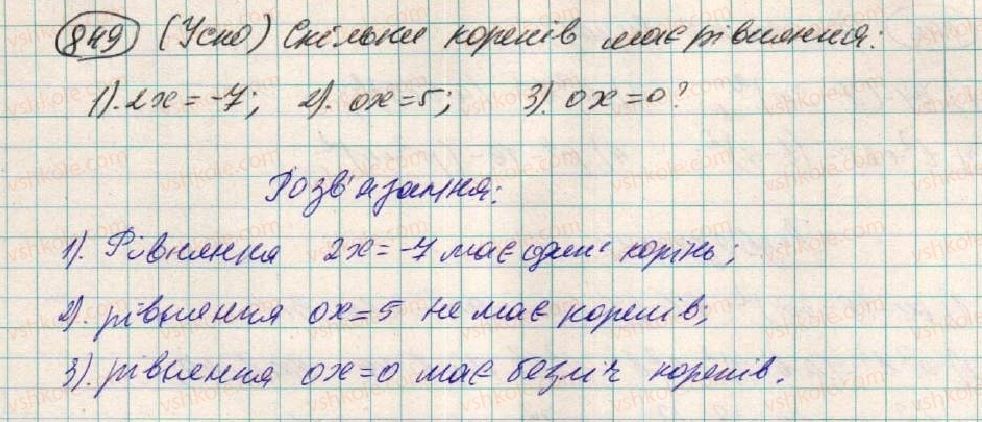 849 (Усно) Скільки коренів має рівняння:
1). 2x = -7; 2). 0x = 5; 3). 0x = 0?
Розв'язання:
1). Рівняння 2x = -7 має один корінь;
2). рівняння 0x = 5 не має коренів;
3). рівняння 0x = 0 має безліч коренів.